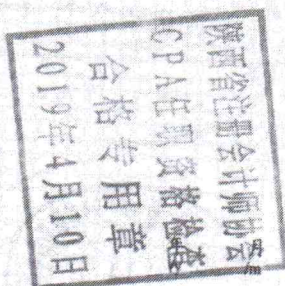 陕西省注册会计师协会
CPA任职资格检查
合格专用章
2019年4月10日
月
/m